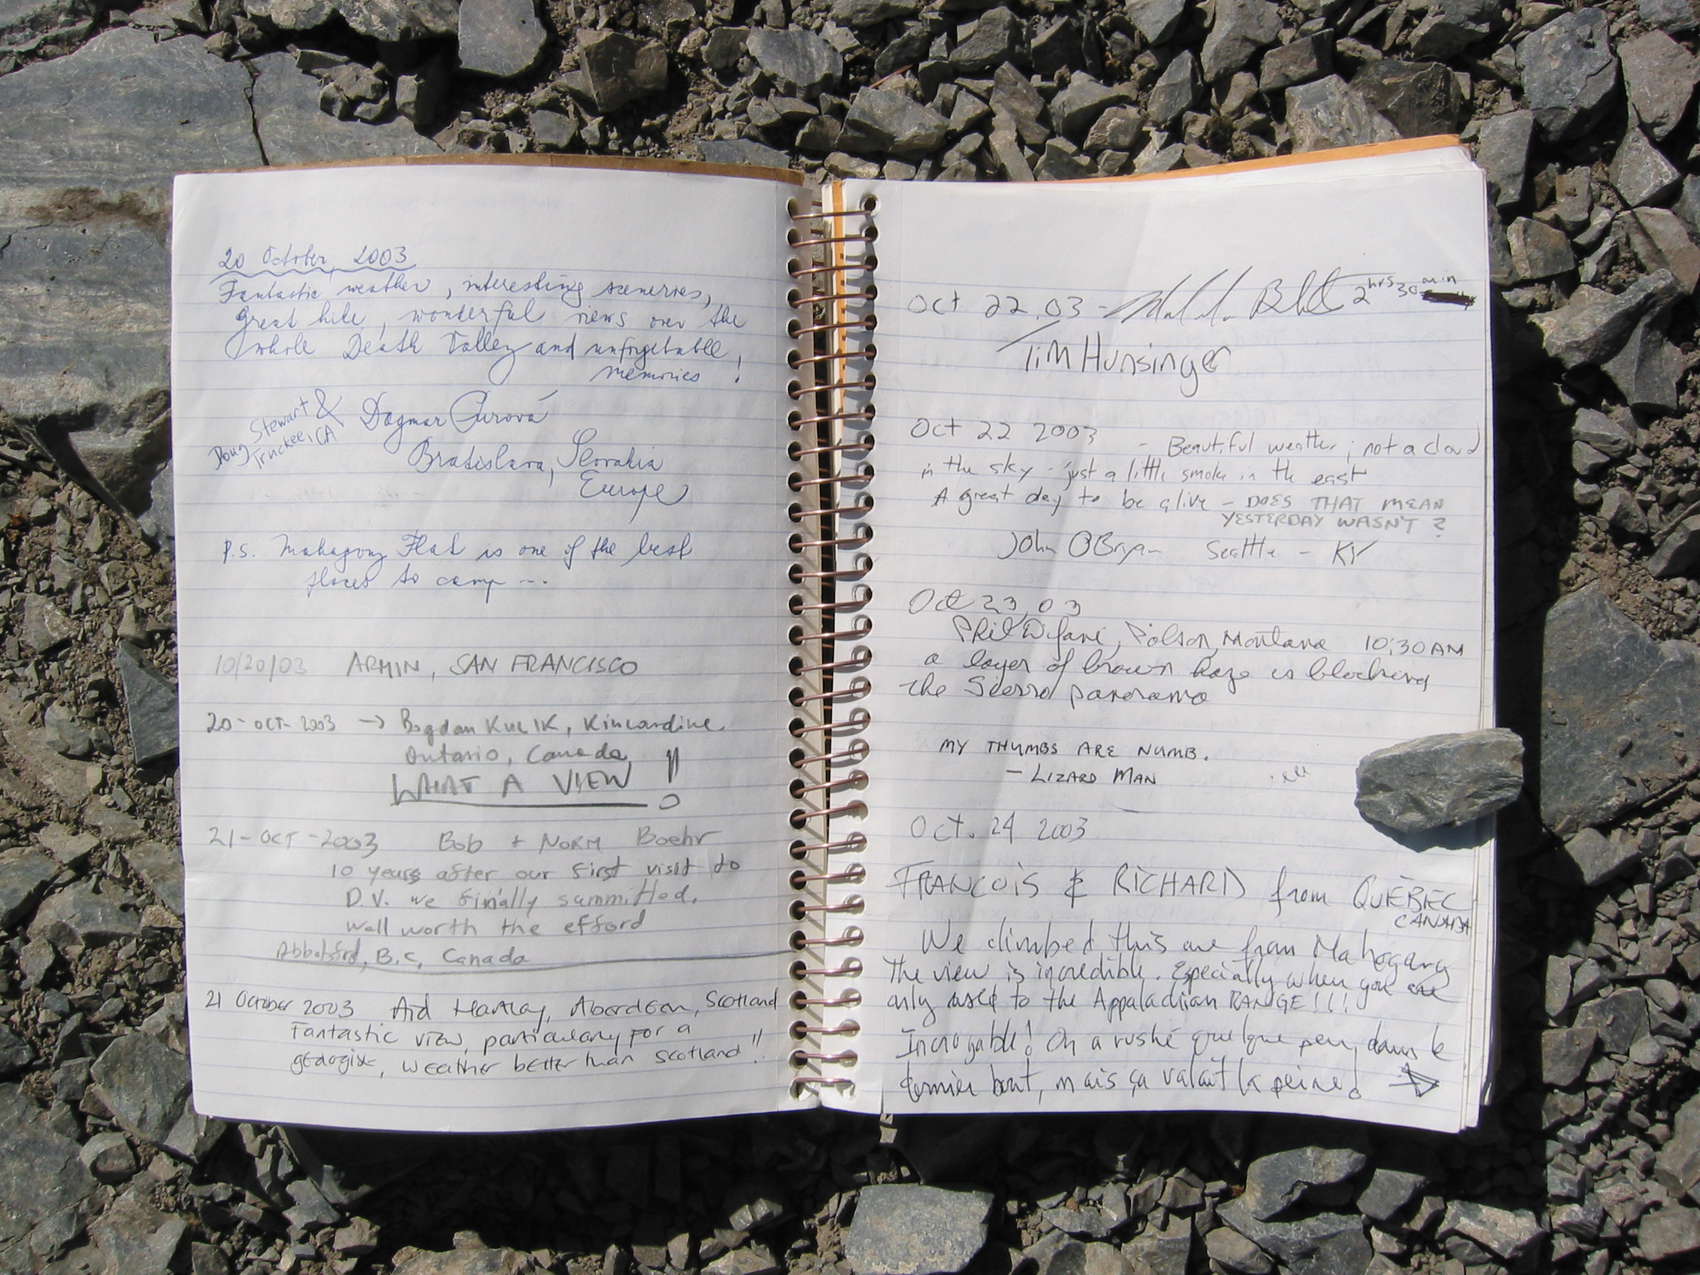 20 October, 2003
Fantastic weather, interesting sceneries,
great hike, wonderful views over the
whole Death Valley and unforgetable
memories!
Doug Stewart &
Truckee, CA
Dagmar
Bratislava, Slovakia
Europe
P.S. Mahagony Flat is one of the best
places to camp ...
10/20/03 ARMIN, SAN FRANCISCO
20-OCT-2003 → Bogdan Kucik, Kincardine
Ontario, Canada
WHAT A VIEW !!
21-OCT-2003 Bob + NORM Boehr
10 years after our first visit to
D.V. we finally summitted.
well worth the efford
Abbotsford, B.C, Canada
21 October 2003 Aberdeen, Scotland
Fantastic view, particulary for a
weather better than Scotland!!
Oct 22, 03 - 2 hrs 30 min
Tim Hunsinger
Oct 22 2003 - Beautiful weather; not a cloud
in the sky - just a little smoke in the east
A great day to be alive - DOES THAT MEAN
YESTERDAY WASN'T?
John O'Bryan Seattle - KY
Oct 23, 03
Phil Polson, Montana 10:30 AM
a layer of brown haze is blocking
the Sierra panorama
MY THUMBS ARE NUMB.
- LIZARD MAN
OCT. 24 2003
FRANCOIS & RICHARD from QUÉBEC
CANADA
We climbed this one from Mahogany
The view is incredible. Especially when you are
only used to the Appalachian RANGE!!!
Incroyable! On a rushé quelque peu dans le
dernier bout, mais ça valait la peine!